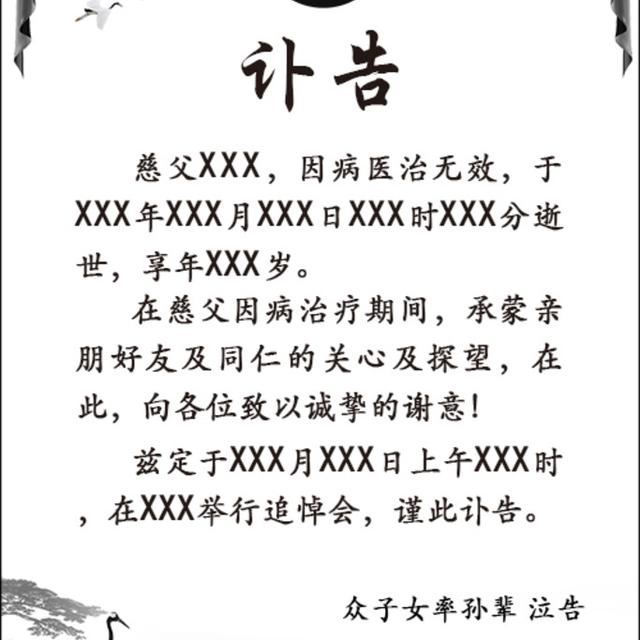 讣告
慈父XXX，因病医治无效，于
XXX年XXX月XXX日XXX时XXX分逝
世，享年XXX岁。
在慈父因病治疗期间，承蒙亲
朋好友及同仁的关心及探望，在
此，向各位致以诚挚的谢意！
兹定于XXX月XXX日上午XXX时
，在XXX举行追悼会，谨此讣告。
众子女率孙辈 泣告